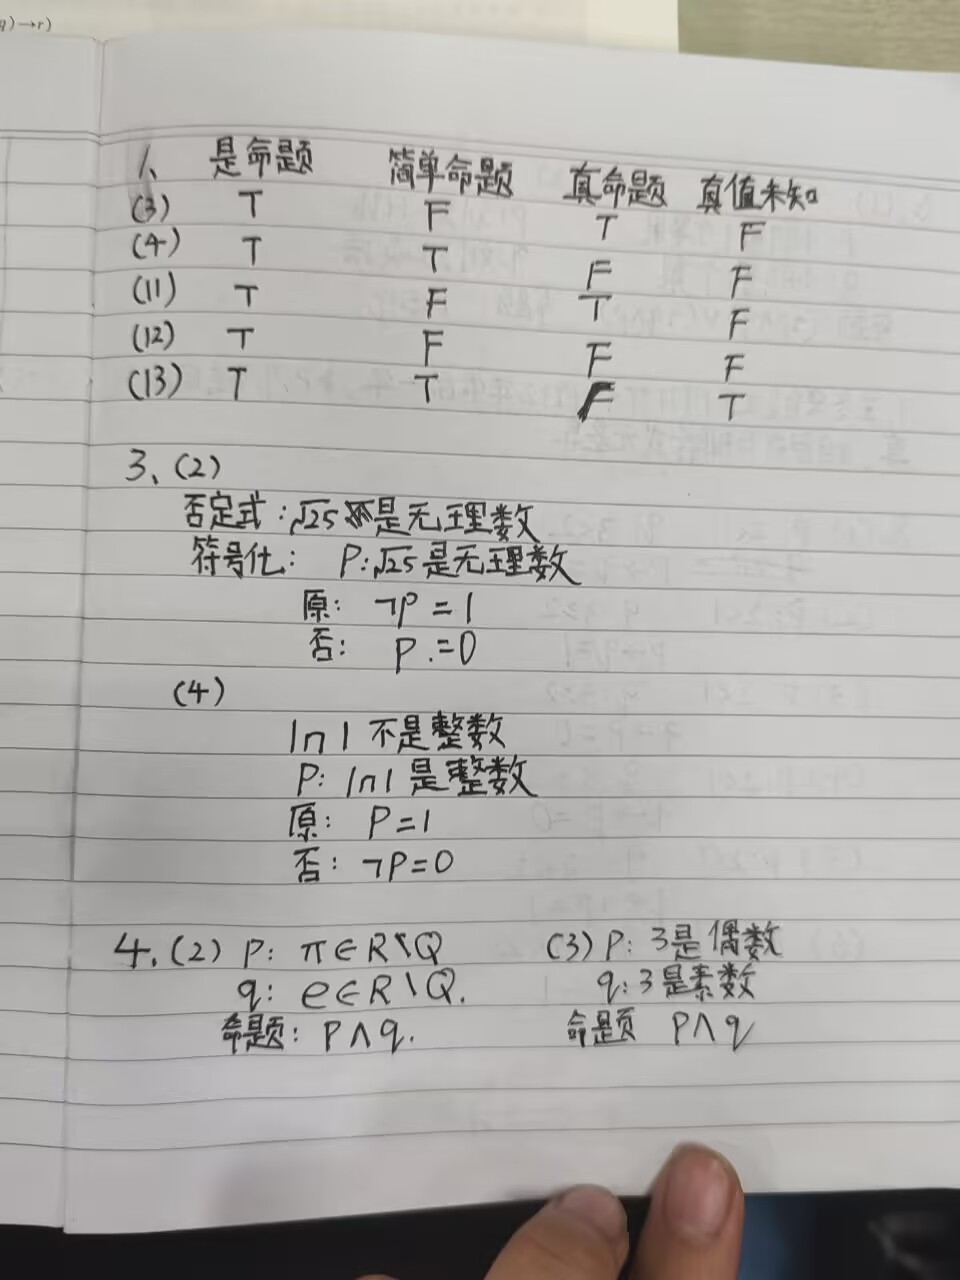 q)→r)
1、 是命题 简单命题 真命题 真值未知
(3) T F T F
(4) T T F F
(11) T F T F
(12) T F F F
(13) T T F T
3、(2)
否定式:√25是无理数
符号化: P:√25是无理数
原: ¬P=1
否: P.=0
(4)
ln1 不是整数
P: ln1是整数
原: P=1
否: ¬P=0
4、(2) P: π∈R\Q (3) P: 3是偶数
q: e∈R\Q. q:3是素数
命题: P∧q. 命题 P∧q